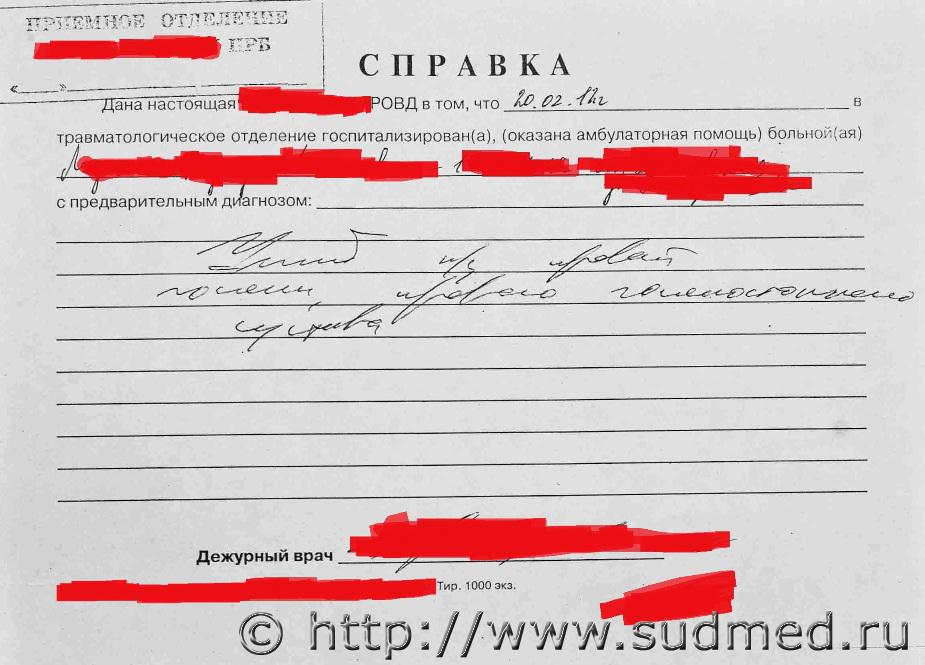 ПРИЕМНОЕ ОТДЕЛЕНИЕ
ЦРБ
«____»
СПРАВКА
Дана настоящая РОВД в том, что 20.02.12г в
травматологическое отделение госпитализирован(а), (оказана амбулаторная помощь) больной(ая)
с предварительным диагнозом:
Ушиб н/з правой
голени правого голеностопного
сустава
Дежурный врач
Тир. 1000 экз.
© http://www.sudmed.ru